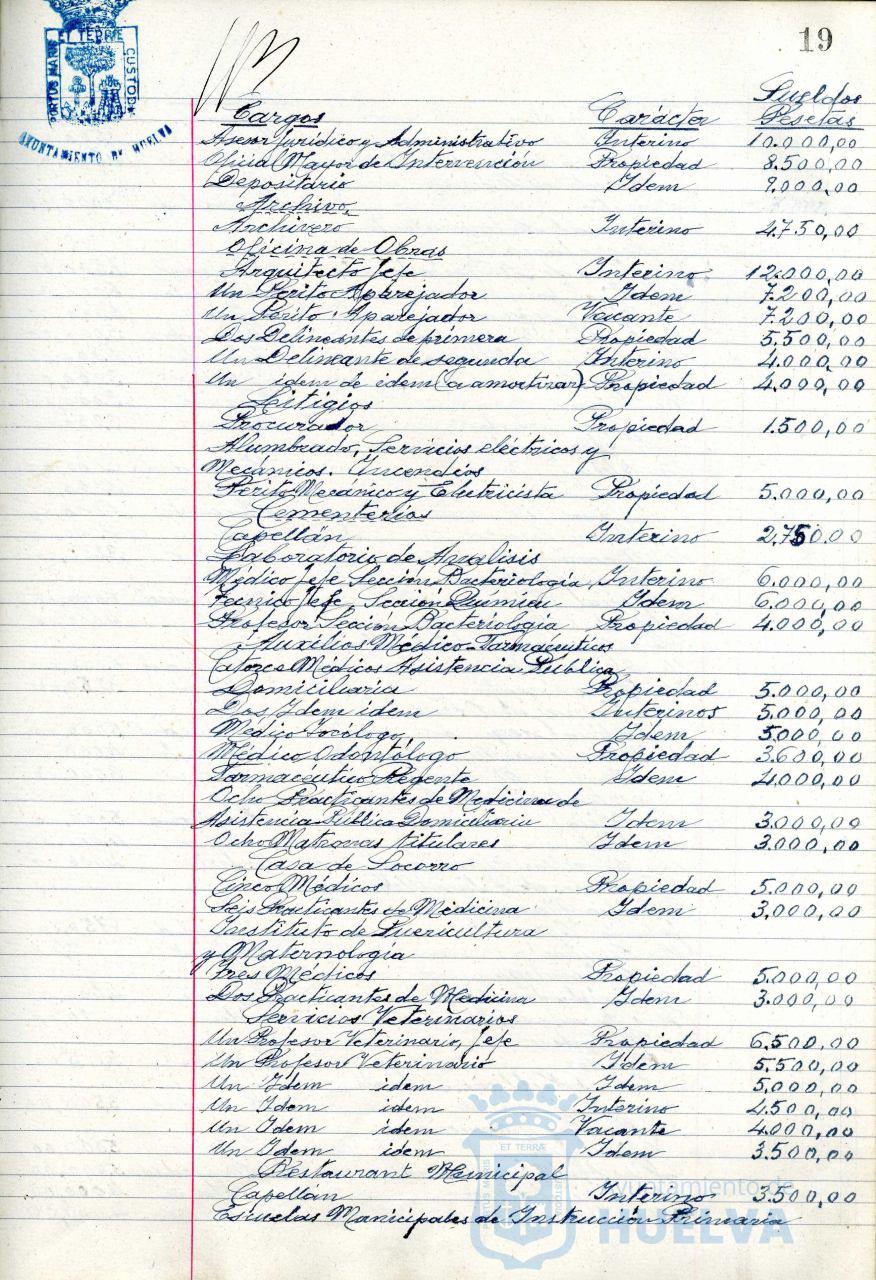 19
PORTUS MARIS ET TERRE CUSTODIA
AYUNTAMIENTO DE HUELVA
Sueldos
Cargos Carácter Pesetas
Asesor Jurídico y Administrativo Interino 10.000,00
Oficial Mayor de Intervención Propiedad 8.500,00
Depositario Idem 9.000,00
Archivo.
Archivero Interino 4.750,00
Oficina de Obras
Arquitecto Jefe Interino 12.000,00
Un Perito Aparejador Idem 7.200,00
Un Perito Aparejador Vacante 7.200,00
Dos Delineantes de primera Propiedad 5.500,00
Un Delineante de segunda Interino 4.000,00
Un idem de idem (a amortizar) Propiedad 4.000,00
Litigios
Procurador Propiedad 1.500,00
Alumbrado, Servicios eléctricos y
Mecánicos. Incendios
Perito Mecánico y Electricista Propiedad 5.000,00
Cementerios
Capellán Interino 2.750.00
Laboratorio de Análisis
Médico Jefe Sección Bacteriología Interino 6.000,00
Técnico Jefe Sección Química Idem 6.000,00
Profesor Sección Bacteriología Propiedad 4.000,00
Auxilios Médico-Farmacéuticos
Catorce Médicos Asistencia Pública
Domiciliaria Propiedad 5.000,00
Dos Idem idem Interinos 5.000,00
Médico Tocólogo Idem 5.000,00
Médico Odontólogo Propiedad 3.600,00
Farmacéutico Regente Idem 4.000,00
Ocho Practicantes de Medicina de
Asistencia Pública Domiciliaria Idem 3.000,00
Ocho Matronas titulares Idem 3.000,00
Casa de Socorro
Cinco Médicos Propiedad 5.000,00
Seis Practicantes de Medicina Idem 3,000,00
Instituto de Puericultura
y Maternología
Tres Médicos Propiedad 5.000,00
Dos Practicantes de Medicina Idem 3.000,00
Servicios Veterinarios
Un Profesor Veterinario, Jefe Propiedad 6.500,00
Un Profesor Veterinario Idem 5.500,00
Un Idem idem Idem 5.000,00
Un Idem idem Interino 4.500,00
Un Idem idem Vacante 4.000,00
Un Idem idem Idem 3.500,00
Restaurant Municipal
Capellán Interino 3.500,00
Escuelas Municipales de Instrucción Primaria
Ayuntamiento de
HUELVA